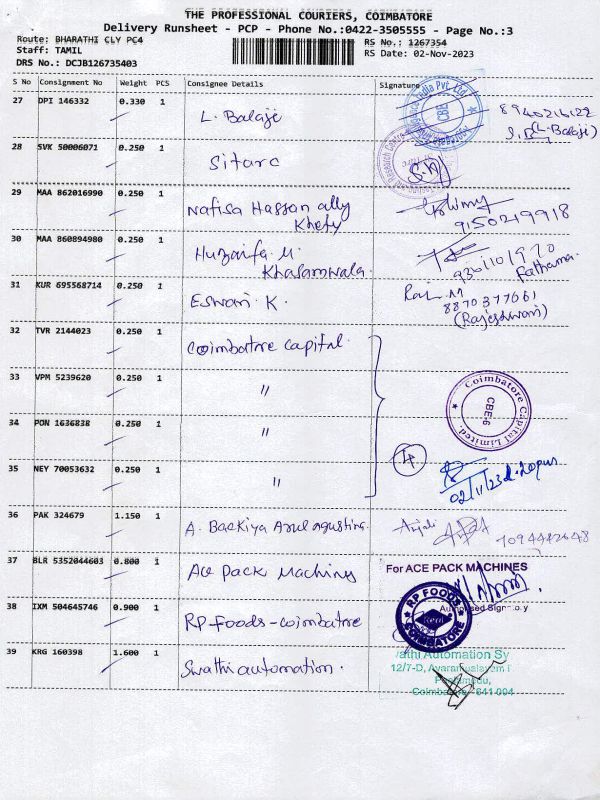 THE PROFESSIONAL COURIERS, COIMBATORE
Delivery Runsheet - PCP - Phone No.:0422-3505555 - Page No.:3
Route: BHARATHI CLY PC4
RS No.: 1267354
Staff: TAMIL
RS Date: 02-Nov-2023
DRS No.: DCJB126735403
S No Consignment No Weight PCS Consignee Details Signature
27 DPI 146332 0.330 1 L. Balaji
8940216122
(L. Balaji)
28 SVK 50006071 0.250 1 Sitarc
29 MAA 862016990 0.250 1 Nafisa Hassan ally
Khety
9150219918
30 MAA 860894980 0.250 1 Huzaifa M.
Khasamwala.
Fathama
31 KUR 695568714 0.250 1 Eswari. K.
8870377061
(Rajeshwari)
32 TVR 2144023 0.250 1 Coimbatore Capital.
33 VPM 5239620 0.250 1 "
Coimbatore Capital Limited.
CBE-6
34 PON 1636838 0.250 1 "
35 NEY 70053632 0.250 1 "
4
02/11/23
36 PAK 324679 1.150 1 A. Backiya Arul agustina.
Anjali
7094442648
37 BLR 5352044603 0.800 1 Ace pack Machines
For ACE PACK MACHINES
38 IXM 504645746 0.900 1 RP-Foods-coimbatore
RP FOODS
COIMBATORE
39 KRG 160398 1.600 1 Swathi automation.
Automation Sy
12/7-D,
641 004